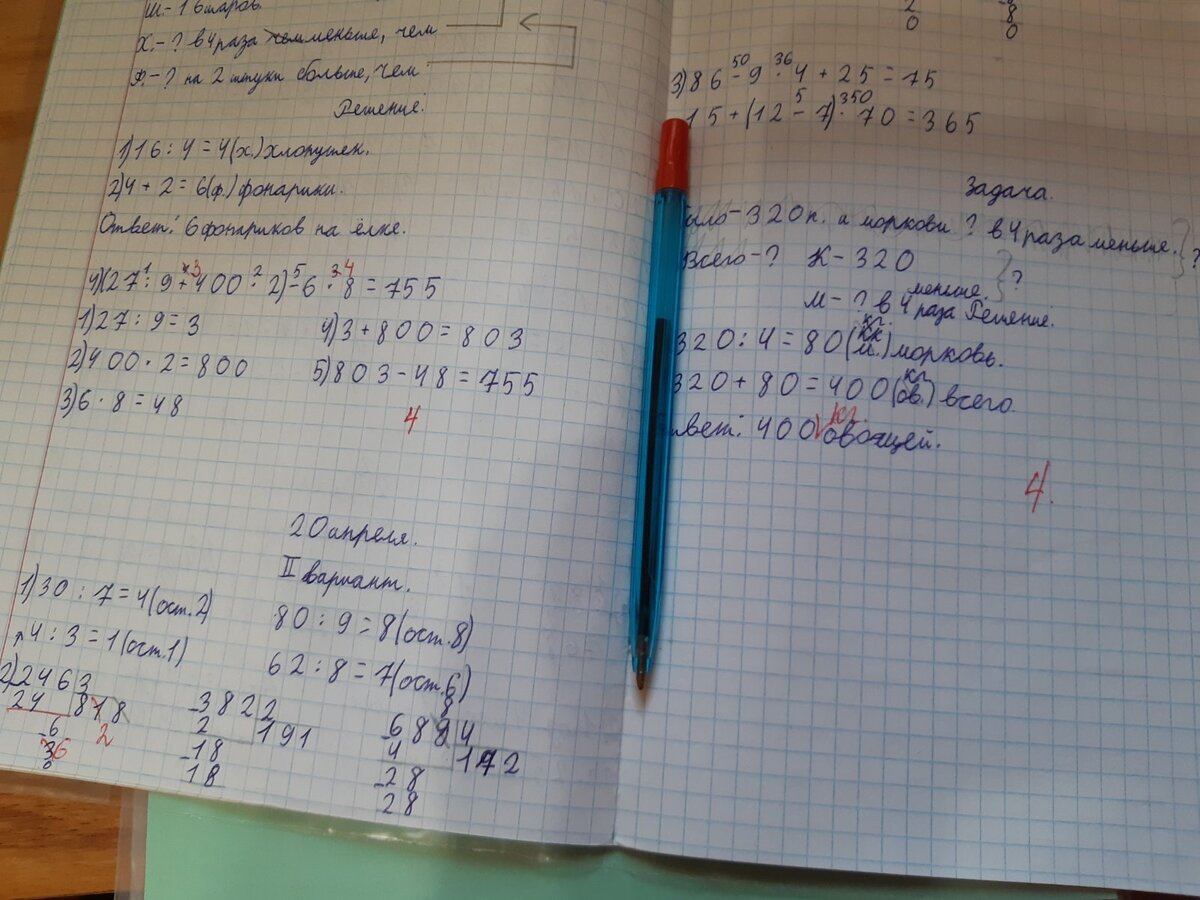 Ш.- 16 шаров.
Х.- ? в 4 раза меньше, чем
Ф.- ? на 2 штуки больше, чем
Решение.
1) 16 : 4 = 4 (х.) хлопушек.
2) 4 + 2 = 6 (ф.) фонарики.
Ответ: 6 фонариков на ёлке.
4) (27 : 9 + 400 · 2) - 6 · 8 = 755
1) 27 : 9 = 3
4) 3 + 800 = 803
2) 400 · 2 = 800
5) 803 - 48 = 755
3) 6 · 8 = 48
4
20 апреля.
II вариант.
1) 30 : 7 = 4 (ост. 2)
80 : 9 = 8 (ост. 8)
4 : 3 = 1 (ост. 1)
62 : 8 = 7 (ост. 6)
2) 246 3
24 818 2
6
382 2
2 191
18
18
688 4
4 172
28
28
2 8
0 0
50 36
3) 86 - 9 · 4 + 25 = 75
5 350
15 + (12 - 7) · 70 = 365
Задача.
ыло - 320 п. а моркови ? в 4 раза меньше. ?
Всего - ? К - 320
?
М - ? в 4 раза меньше. Решение.
320 : 4 = 80 (кг.) морковь.
320 + 80 = 400 (кг) (ов.) всего.
твет: 400 кг. овощей.
4.